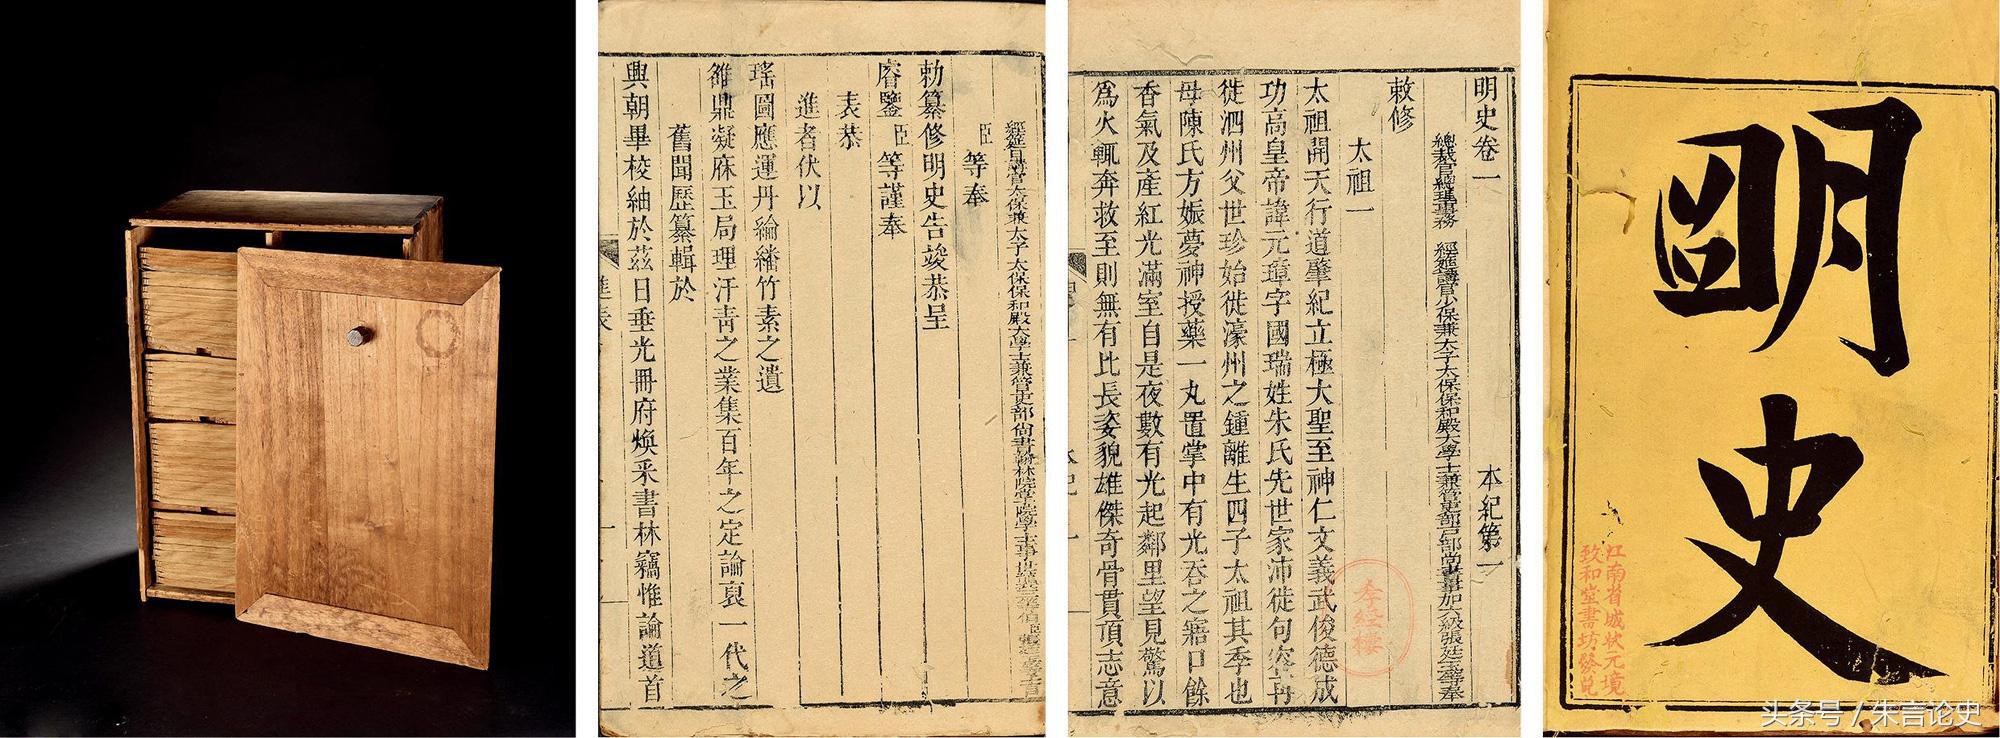 經筵日講官太保兼太子太保保和殿大學士兼管吏部尚書翰林院掌院學士事世襲
臣等奉
勅纂修明史告竣恭呈
睿鑒臣等謹奉
表恭
進者伏以
瑤圖應運丹綸繙竹素之遺
雒鼎凝庥玉局理汗青之業集百年之定論裒一代之
舊聞歷纂輯於
興朝畢校紬於茲日垂光冊府煥采書林竊惟論道首
進表
明史卷一 本紀第一
總裁官總理事務 經筵講官少保兼太子太保保和殿大學士兼管吏部戶部尚書事加六級張廷玉等奉
敕修
太祖一
太祖開天行道肇紀立極大聖至神仁文義武俊德成
功高皇帝諱元璋字國瑞姓朱氏先世家沛徙句容再
徙泗州父世珍始徙濠州之鍾離生四子太祖其季也
母陳氏方娠夢神授藥一丸置掌中有光吞之寤口餘
香氣及產紅光滿室自是夜數有光起鄰里望見驚以
為火輒奔救至則無有比長姿貌雄傑奇骨貫頂志意
李經樓
明史
江南省城狀元境
致和堂書坊發兌
头条号／朱言论史